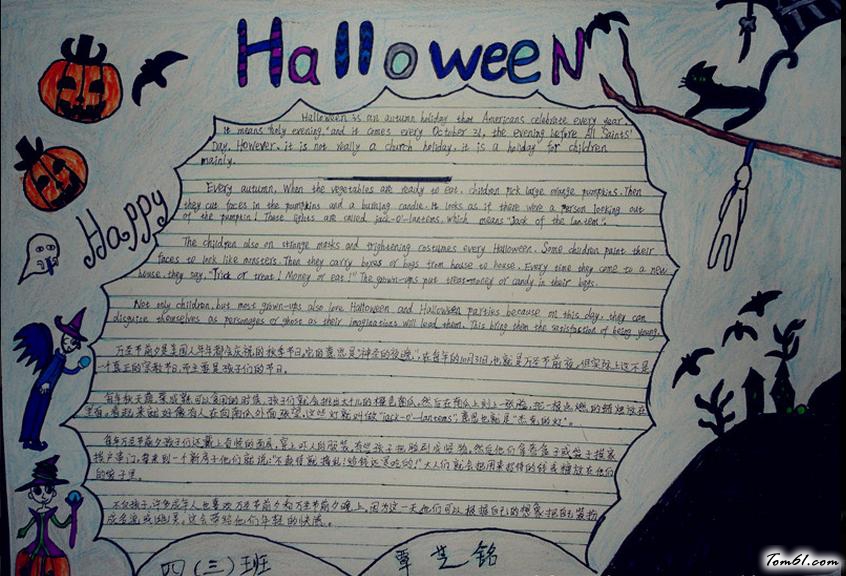 Halloween
Happy
Halloween is an autumn holiday that Americans celebrate every year.
It means "holy evening," and it comes every October 31, the evening before All Saints'
Day. However, it is not really a church holiday, it is a holiday for children
mainly.
Every autumn, When the vegetables are ready to eat, children pick large orange pumpkins. Then
they cut faces in the pumpkins and a burning candle. It looks as if there were a person looking out
of the pumpkin! These lights are called jack-o'-lantems, which means "Jack of the lantem".
The children also on strange masks and frightening costumes every Halloween. Some children paint their
faces to look like monsters. Then they carry boxes or bags from house to house. Every time they come to a new
house, they say, "Trick or treat! Money or eat!" The grown-ups put treat-money or candy in their bags.
Not only children, but most grown-ups also love Halloween and Halloween parties because on this day, they can
disguise themselves as personages or ghost as their imaginations will lead them. This bring them the satisfaction of being young.
万圣节前夕是美国人年年都会庆祝的秋季节日。它的意思是"神圣的夜晚",在每年的10月31日,也就是万圣节前夜。但实际上这不是
一个真正的宗教节日,而主要是孩子们的节日。
每年秋天蔬菜成熟可以食用的时候,孩子们就会挑出大个儿的橙色南瓜。然后在南瓜上刻上一张脸,把一根点燃的蜡烛放在
里面。看起来就好像有人在向南瓜外面张望。这些灯就叫做"jack-o'-lantems",意思也就是"杰克的灯"。
每年万圣节前夕孩子们还戴上奇怪的面具,穿上吓人的服装。有些孩子把脸刷成怪物。然后他们拿着盒子或袋子挨家
挨户串门。每来到一个新房子他们就说:"不款待就捣乱!给钱还是吃的!"大人们就会把用来招待的钱或糖放在他们
的袋子里。
不仅孩子,许多成年人也喜欢万圣节前夕和万圣节前夕晚上。因为这一天他们可以根据自己的想象把自己装扮
成名流或幽灵。这会带给他们年轻的快感。
四(三)班
覃芝铭
Tom61.com